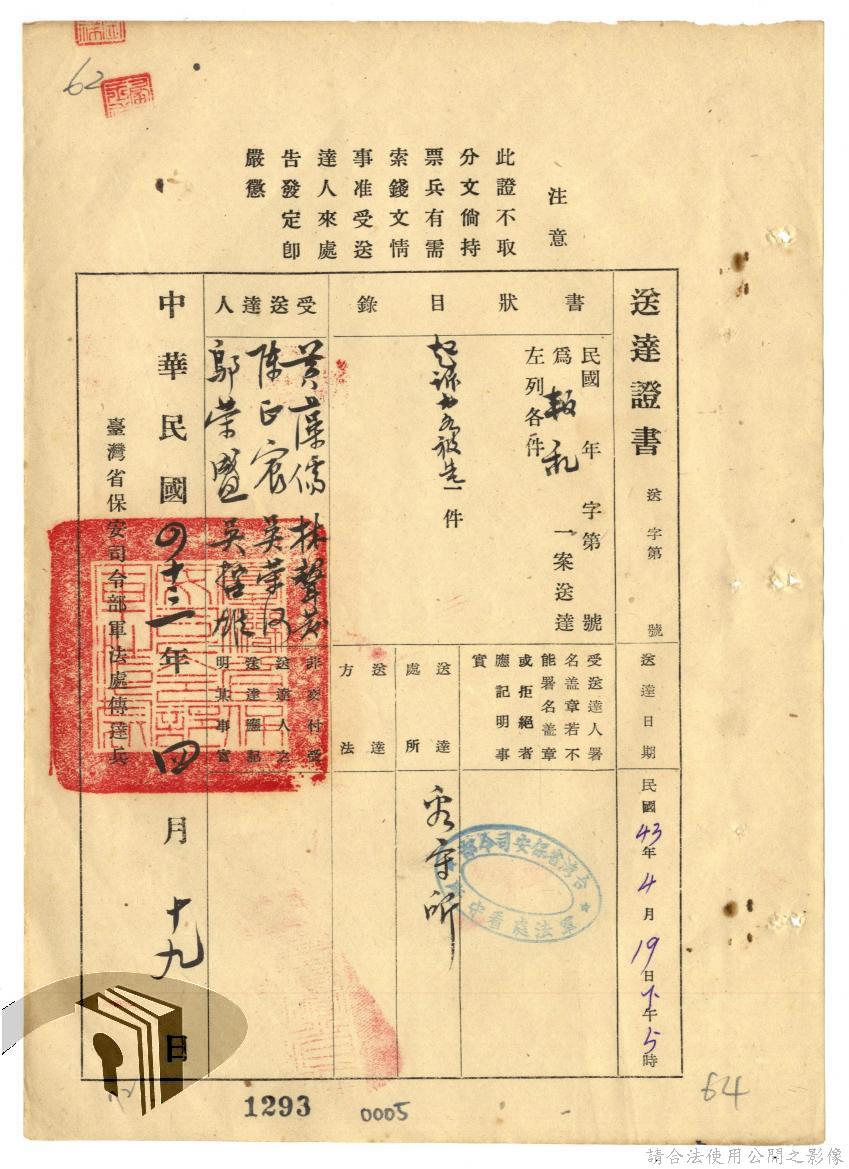 62
注意
此證不取
分文倘持
票兵有需
索錢文情
事准受送
達人來處
告發定卽
嚴懲
送達證書
送 字第 號
送達日期
民國43年4月19日下午5時
書狀目錄
民國 年 字第 號
爲叛亂一案送達
左列各件
起訴書被告一件
受送達人署
名蓋章若不
能署名蓋章
或拒絕者
應記明事
實
送達處所
看守所
台灣省保安司令部
軍法處看守
送達方法
受送達人
黃藻儒 林聲發
陳正宸 吳榮
鄔榮 吳哲雄
非交付受
送達人之
送達應記
明某事實
中華民國四十三年四月十九日
臺灣省保安司令部軍法處傳達兵
1293
0005
64
請合法使用公開之影像